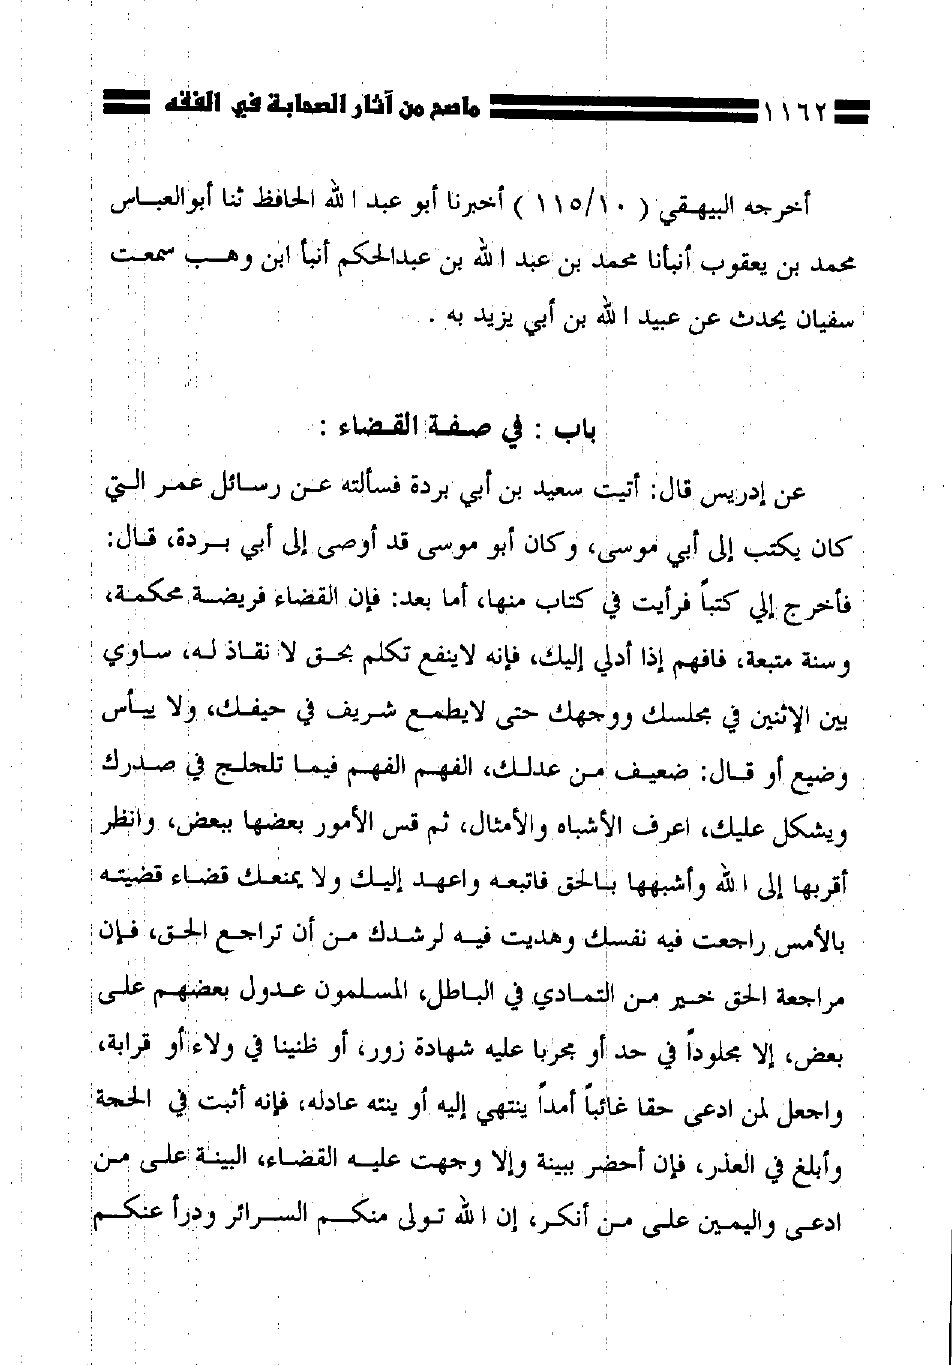 ١١٦٢ ماصح من آثار الصحابة في الفقه
أخرجه البيهقي ( ١١٥/١٠ ) أخبرنا أبو عبد الله الحافظ ثنا أبوالعباس
محمد بن يعقوب أنبأنا محمد بن عبد الله بن عبدالحكم أنبأ ابن وهب سمعت
سفيان يحدث عن عبيد الله بن أبي يزيد به .
باب : في صفة القضاء :
عن إدريس قال: أتيت سعيد بن أبي بردة فسألته عن رسائل عمر التي
كان يكتب إلى أبي موسى، وكان أبو موسى قد أوصى إلى أبي بردة، قال:
فأخرج إلي كتباً فرأيت في كتاب منها، أما بعد: فإن القضاء فريضة محكمة،
وسنة متبعة، فافهم إذا أدلي إليك، فإنه لاينفع تكلم بحق لا نقاذ له، ساوي
بين الإثنين في مجلسك ووجهك حتى لايطمع شريف في حيفك، ولا ييأس
وضيع أو قال: ضعيف من عدلك، الفهم الفهم فيما تلجلج في صدرك
ويشكل عليك، اعرف الأشباه والأمثال، ثم قس الأمور بعضها ببعض، وانظر
أقربها إلى الله وأشبهها بالحق فاتبعه واعهد إليك ولا يمنعك قضاء قضيته
بالأمس راجعت فيه نفسك وهديت فيه لرشدك من أن تراجع الحق، فإن
مراجعة الحق خير من التمادي في الباطل، المسلمون عدول بعضهم على
بعض، إلا مجلوداً في حد أو مجربا عليه شهادة زور، أو ظنينا في ولاء أو قرابة،
واجعل لمن ادعى حقا غائباً أمداً ينتهي إليه أو ينته عادله، فإنه أثبت في الحجة
وأبلغ في العذر، فإن أحضر ببينة وإلا وجهت عليه القضاء، البينة على من
ادعى واليمين على من أنكر، إن الله تولى منكم السرائر ودرأ عنكم